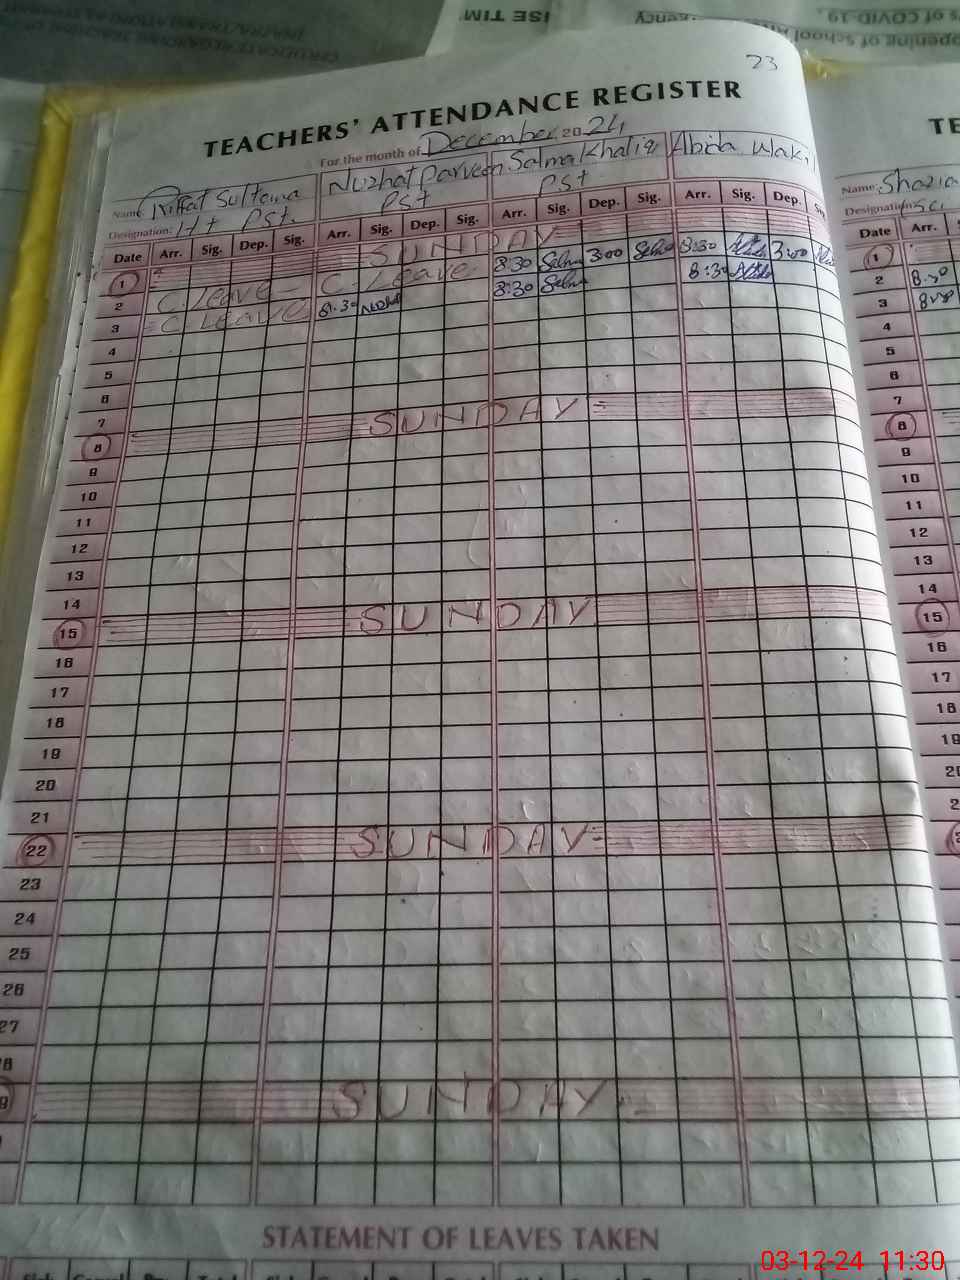 23
TEACHERS' ATTENDANCE REGISTER
For the month of December 2024
Name Riffat Sultana Nuzhat Parveen Salma Khaliq Abida Wakil
Designation: Ht PSt. PSt PSt
Date Arr. Sig. Dep. Sig. Arr. Sig. Dep. Sig. Arr. Sig. Dep. Sig. Arr. Sig. Dep.
1 SUNDAY
2 C. Leave C. Leave 8:30 Salma 3:00 Salma 8:30 3:00
3 C. Leave 8:30 8:30 Salma 8:30
4
5
6
7
8 SUNDAY
9
10
11
12
13
14
15 SUNDAY
16
17
18
19
20
21
22 SUNDAY
23
24
25
26
27
SUNDAY
STATEMENT OF LEAVES TAKEN
Name Shazia
Designation:
Date Arr.
1
2 8:30
3 8:30
4
5
6
7
8
9
10
11
12
13
14
15
16
17
18
19
ISE TIM
opening of school
s of COVID-19,
03-12-24 11:30